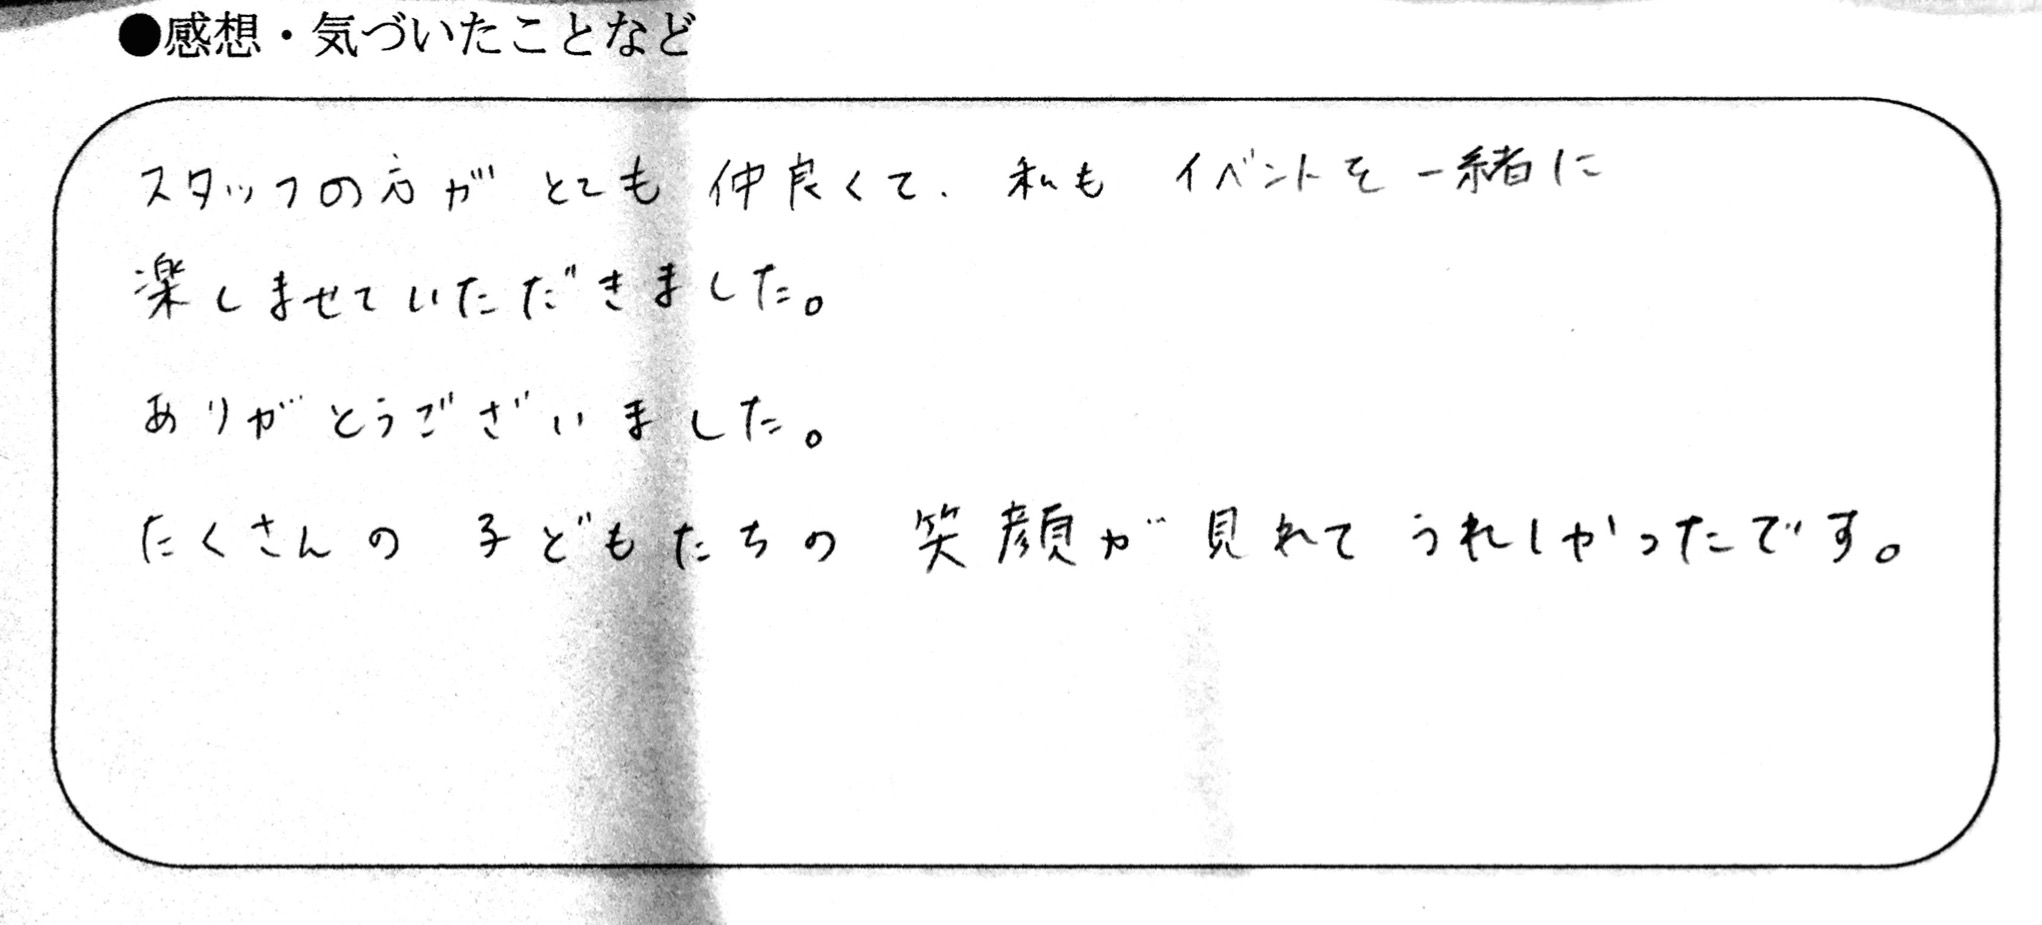 ●感想・気づいたことなど
スタッフの方がとても仲良くて、私もイベントを一緒に
楽しませていただきました。
ありがとうございました。
たくさんの子どもたちの笑顔が見れてうれしかったです。